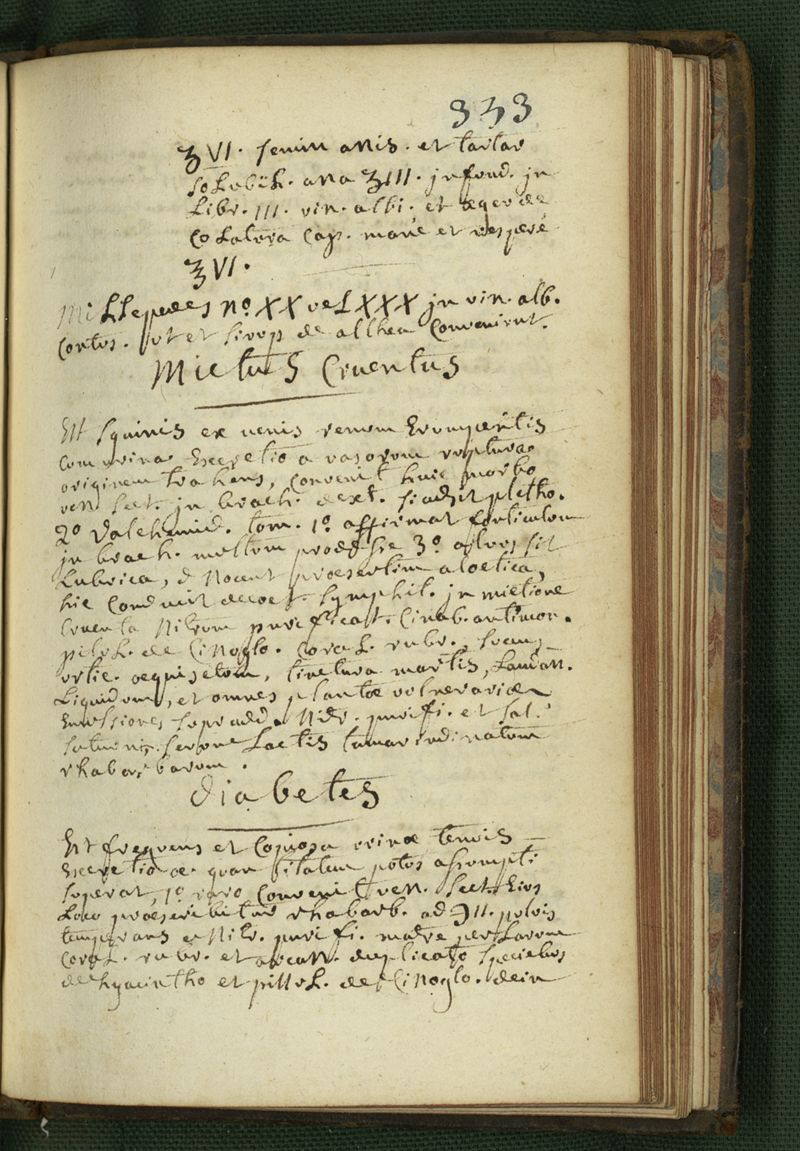 333
ʒVI. semin anis. et tartar
solubil. ana ʒIII. infund. in
Libr. III. vin. albi. et aeger de
Colatura cap. mane et vespere
ʒVI.
Millepedes no. XX vel XXX in vin. alb.
contus. ut et sirop de althea conveniunt.
Mictus Cruentus
Est sguinis ex venis renum erumpentis
cum urina excretio a vasorum ruptura
originem trahens, convenit huic morbo
ven sect. in brach. dext. si adsit pletho.
2o Valchmid. tom. 1o affirmat fonticulum
in brach. multum prodesse 3o alvus sit
Lubrica, nocent proesertim aloetica,
hic conducit decoct. symphit. in mictione
cruenta Nitrum purificat. Cinab. antimon.
pilul. de Cinoglo. coral. rubr.,
urtic. aequisetum, tinctura martis, Laudan.
Liquidum, et omnes plantae vulnerariae
Emulsiones Nitr. purifi. et sal.
saturni. serum Lactis tamarindinatum
rhabarbarum.
Diabetes
Est frequens et copiosa urinae tenuis
excretio quae quantitatem potus assumpti
superat, 1o raro convenit ven. sect. Eius
Loco proescribitur rhabarb. ad ℈II. pulvis
temperans e Nitr. purifi. matre perlarum
coral. rubr. et arcan. duplicato speciebus
de hyacintho et pillul. de Cinoglo. dein